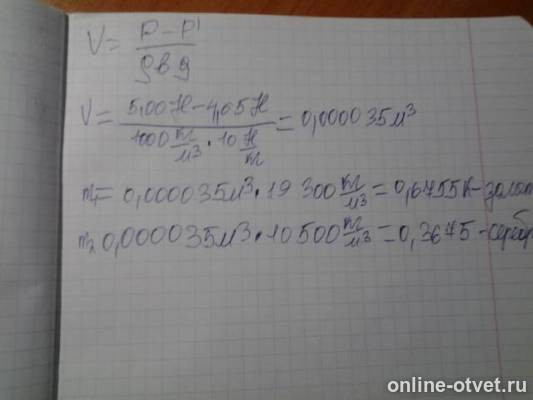 V = P - P¹ / ρв g
V = 5,00 Н - 4,05 Н / 1000 кг/м³ · 10 Н/кг = 0,000035 м³
m₁ = 0,000035 м³ · 19 300 кг/м³ = 0,6755 К - золот
m₂ 0,000035 м³ · 10 500 кг/м³ = 0,3675 - серебр
online-otvet.ru